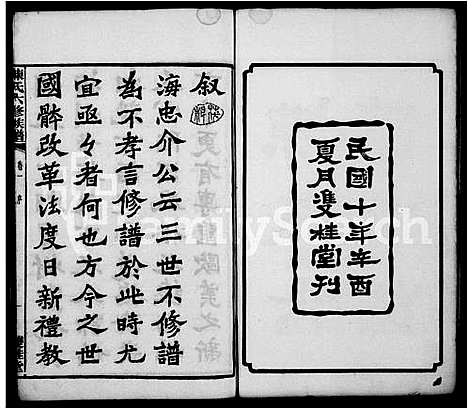 民國十年辛酉
夏月雙桂堂刊
叙
海忠介公云三世不修譜
為不孝言修譜於此時尤
宜亟々者何也方今之世
國骵改革法度日新禮教
陳氏六修族譜
卷一
序
FamilySearch